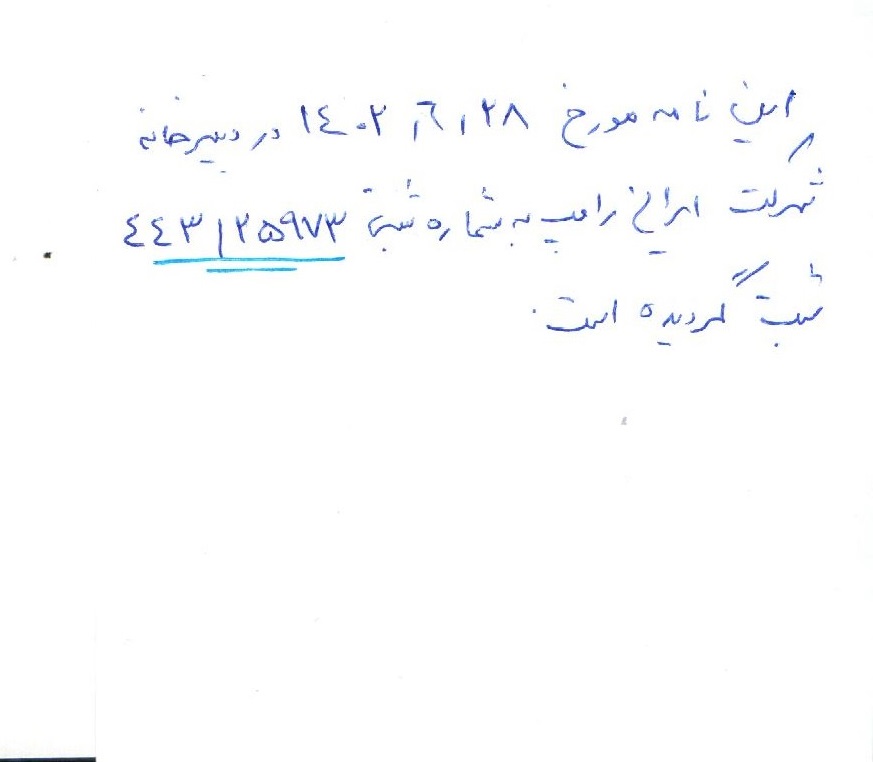 این نامه مورخ ۱۴۰۲٫۶٫۲۸ در دبیرخانه
شرکت ایرانی رامپ به شماره ثبت ۴۴۳/۲۵۹۷۳
ثبت گردیده است.